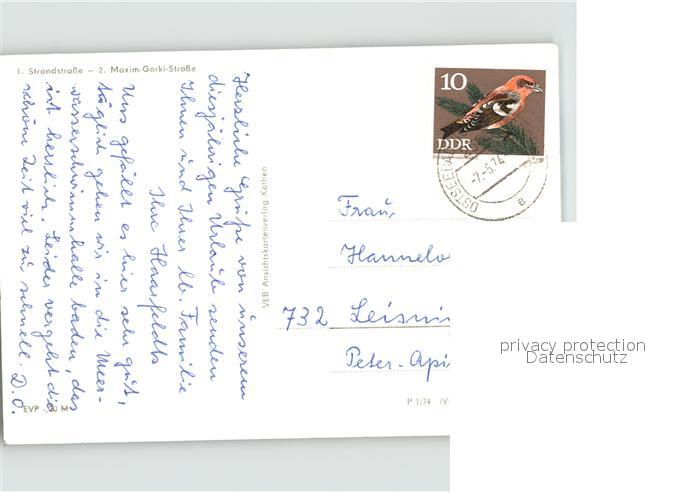 1. Strandstraße — 2. Maxim-Gorki-Straße
Herzliche Grüße von unserem
diesjährigen Urlaub senden
Ihnen und Ihrer lb. Familie
Ihre Haasfeldts
Uns gefällt es hier sehr gut,
täglich gehen wir in die Meer-
wasserschwimmhalle baden, das
ist herrlich. Leider vergeht die
schöne Zeit viel zu schnell. D.O.
EVP -,20 M
VEB Ansichtskartenverlag Köthen
10
DDR
OSTSEEBAD
-7.-5.74
e
Frau,
Hannelo
732 Leisni
Peter-Api
P 1/74 IV-
privacy protection
Datenschutz